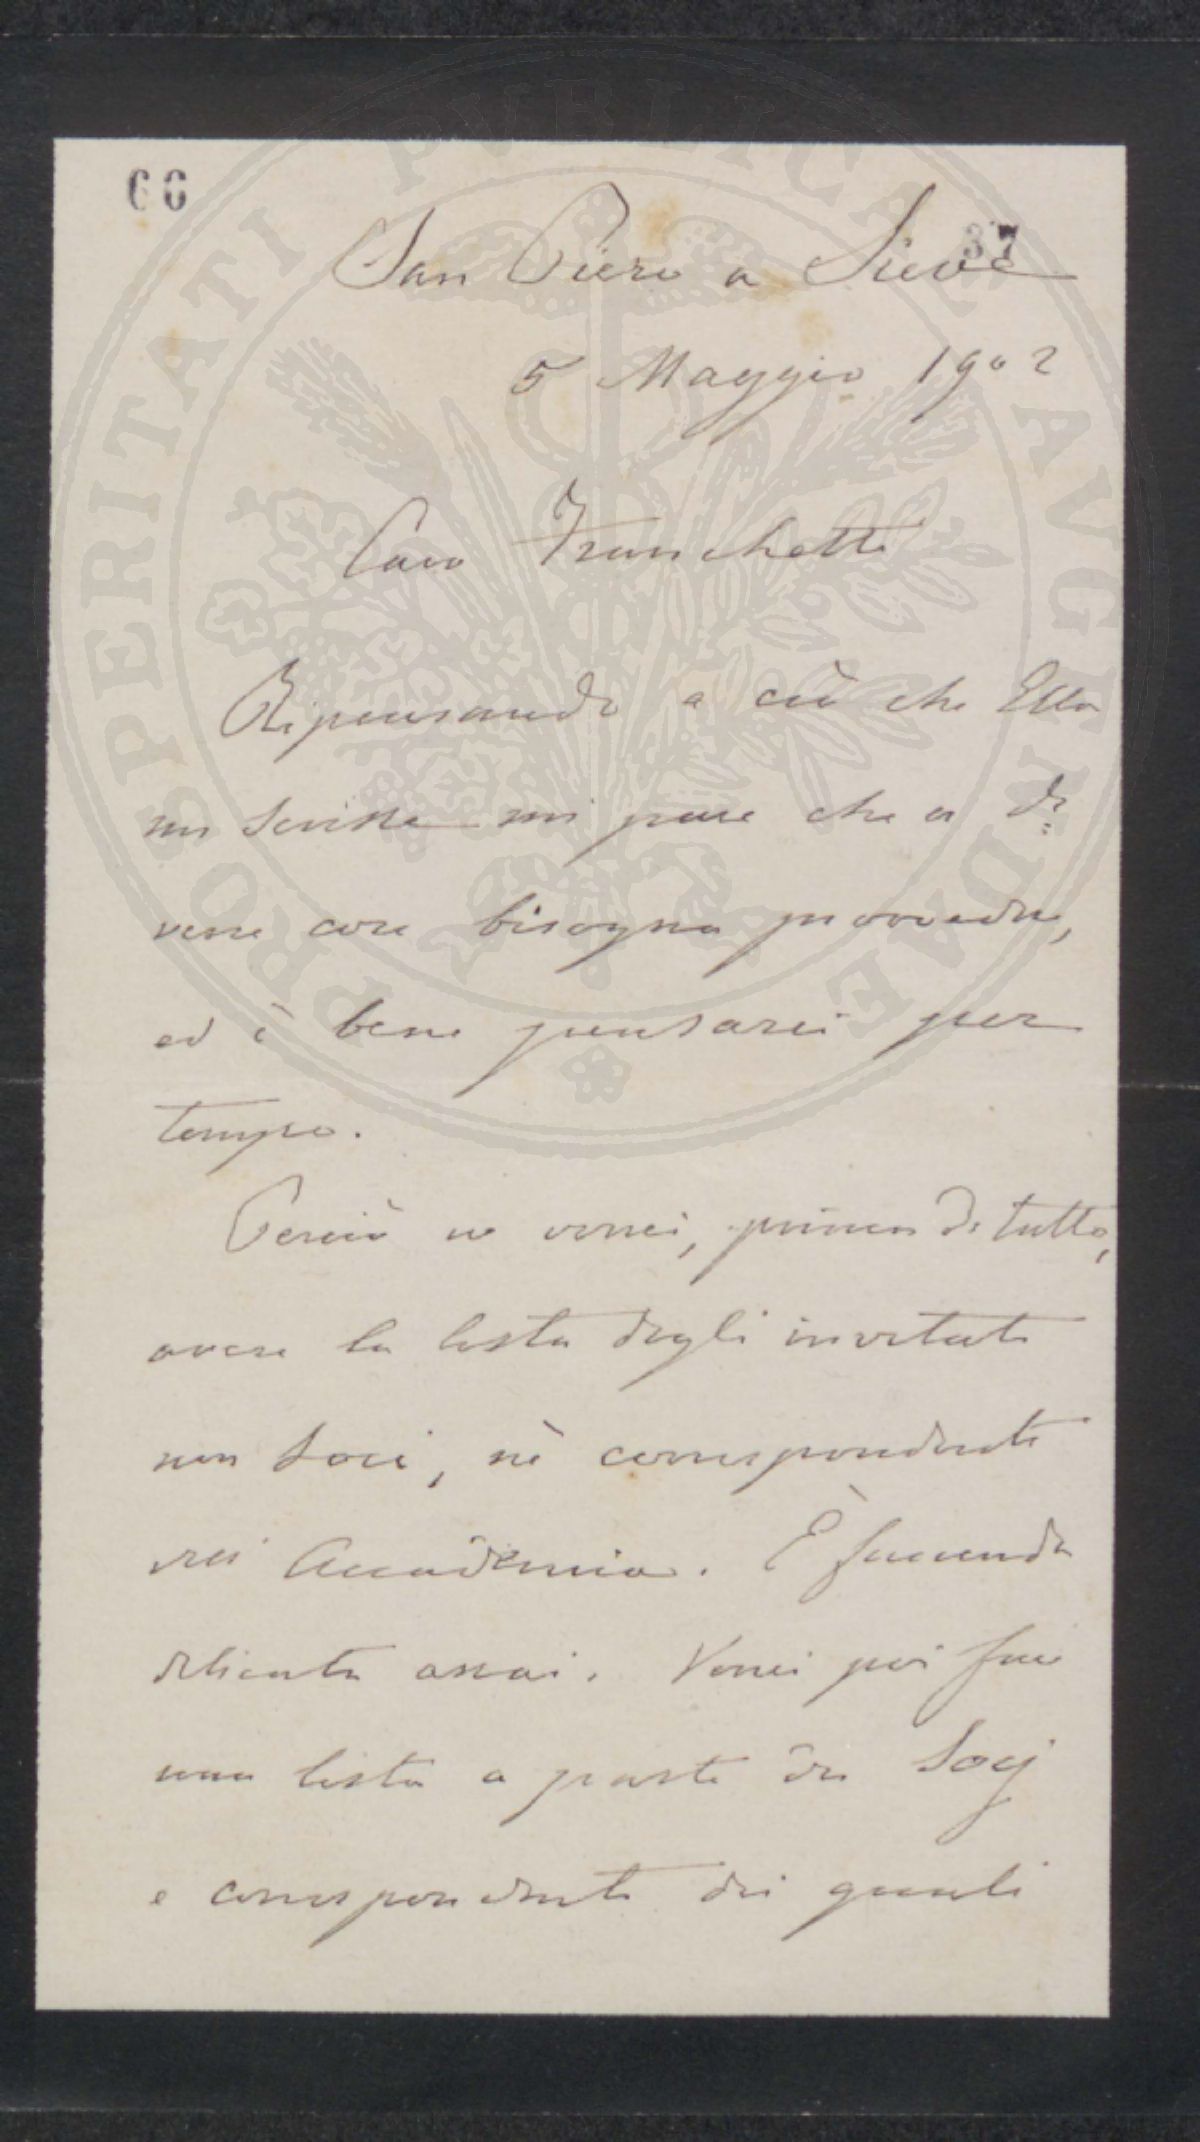 60
37
San Piero a Sieve
5 Maggio 1902
Caro Franchetti
Ripensando a ciò che Ella
mi scrisse mi pare che a di=
verse cose bisogna provvedere,
ed è bene pensarci per
tempo.
Perciò io vorrei, prima di tutto,
avere la lista degli invitati
non Soci, nè corrispondenti
dei Accademia. È faccenda
delicata assai. Vorrei poi fare
una lista a parte dei Socj
e corrispondenti dei quali
PROSPERITATI PVBLICAE AVGENDAE